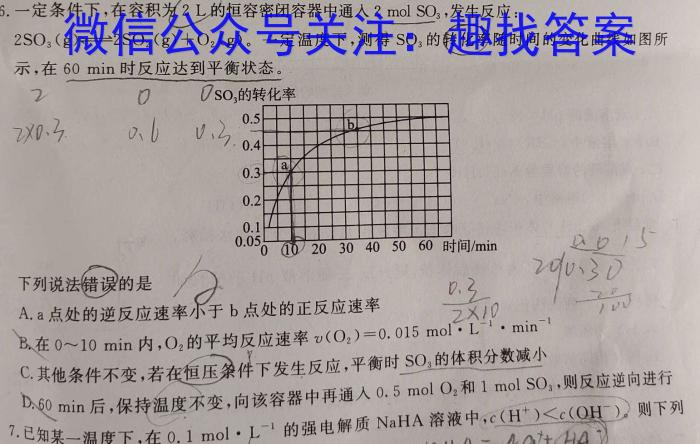 6.一定条件下,在容积为2 L的恒容密闭容器中通入2 mol SO₃,发生反应:
2SO₃(g) 2SO₂(g)+O₂(g)。一定温度下,测得SO₃的转化率随时间的变化曲线如图所
微信公众号关注:趣找答案
示,在60 min时反应达到平衡状态。
2 0 0
2×0.3 0.6 0.3
SO₃的转化率
0.5
0.4
0.3
0.2
0.1
0.05
a
b
0 10 20 30 40 50 60 时间/min
下列说法错误的是
0.3
2×10
0.015
20 0.30
20
100
A.a点处的逆反应速率小于b点处的正反应速率
B.在0~10 min内,O₂的平均反应速率v(O₂)=0.015 mol·L⁻¹·min⁻¹
C.其他条件不变,若在恒压条件下发生反应,平衡时SO₃的体积分数减小
D.60 min后,保持温度不变,向该容器中再通入0.5 mol O₂和1 mol SO₃,则反应逆向进行
7.已知某一温度下,在0.1 mol·L⁻¹的强电解质NaHA溶液中,c(H⁺)<c(OH⁻)。则下列